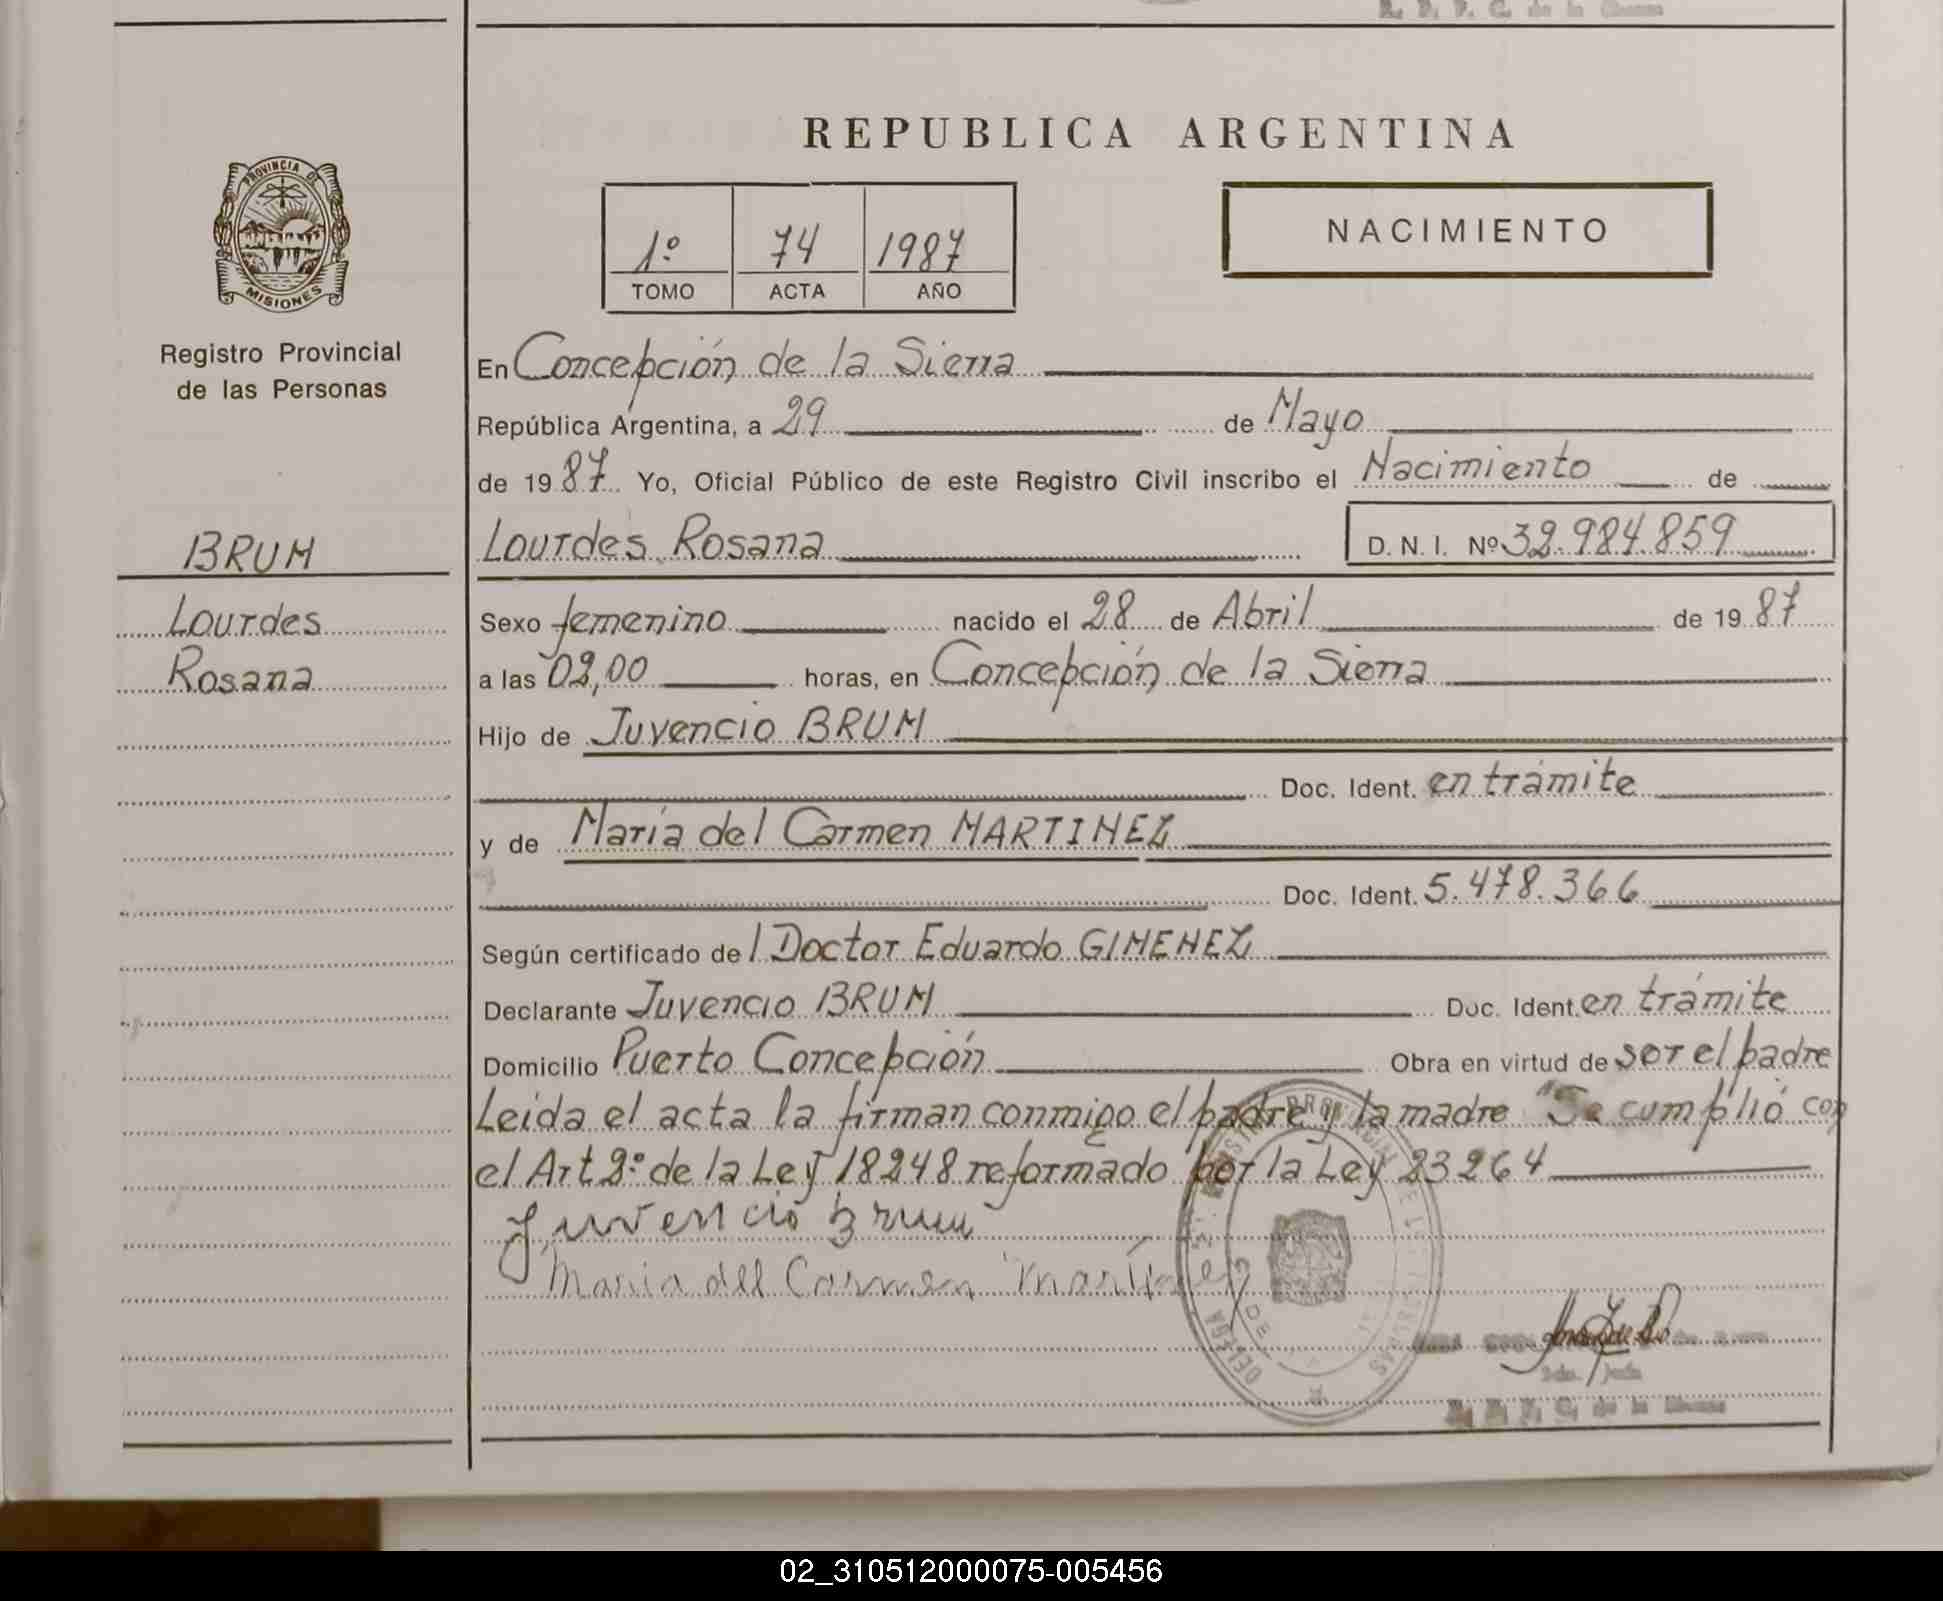 R. P. P. C. de la Sierra
REPUBLICA ARGENTINA
PROVINCIA DE
MISIONES
Registro Provincial
de las Personas
1º 74 1987
TOMO ACTA AÑO
NACIMIENTO
En Concepción de la Sierra
República Argentina, a 29 de Mayo
de 1987 Yo, Oficial Público de este Registro Civil inscribo el Nacimiento de
BRUM
Lourdes Rosana D. N. I. Nº 32.984.859
Lourdes
Rosana
Sexo femenino nacido el 28 de Abril de 1987
a las 02,00 horas, en Concepción de la Sierra
Hijo de Juvencio BRUM
Doc. Ident. en trámite
y de María del Carmen MARTINEZ
Doc. Ident. 5.478.366
Según certificado del Doctor Eduardo GIMENEZ
Declarante Juvencio BRUM Doc. Ident. en trámite
Domicilio Puerto Concepción Obra en virtud de ser el padre
Leida el acta la firman conmigo el padre y la madre "Se cumplió con
el Art 2º de la Ley 18248 reformado por la Ley 23264
Juvencio Brum
Maria del Carmen Martinez
02_310512000075-005456